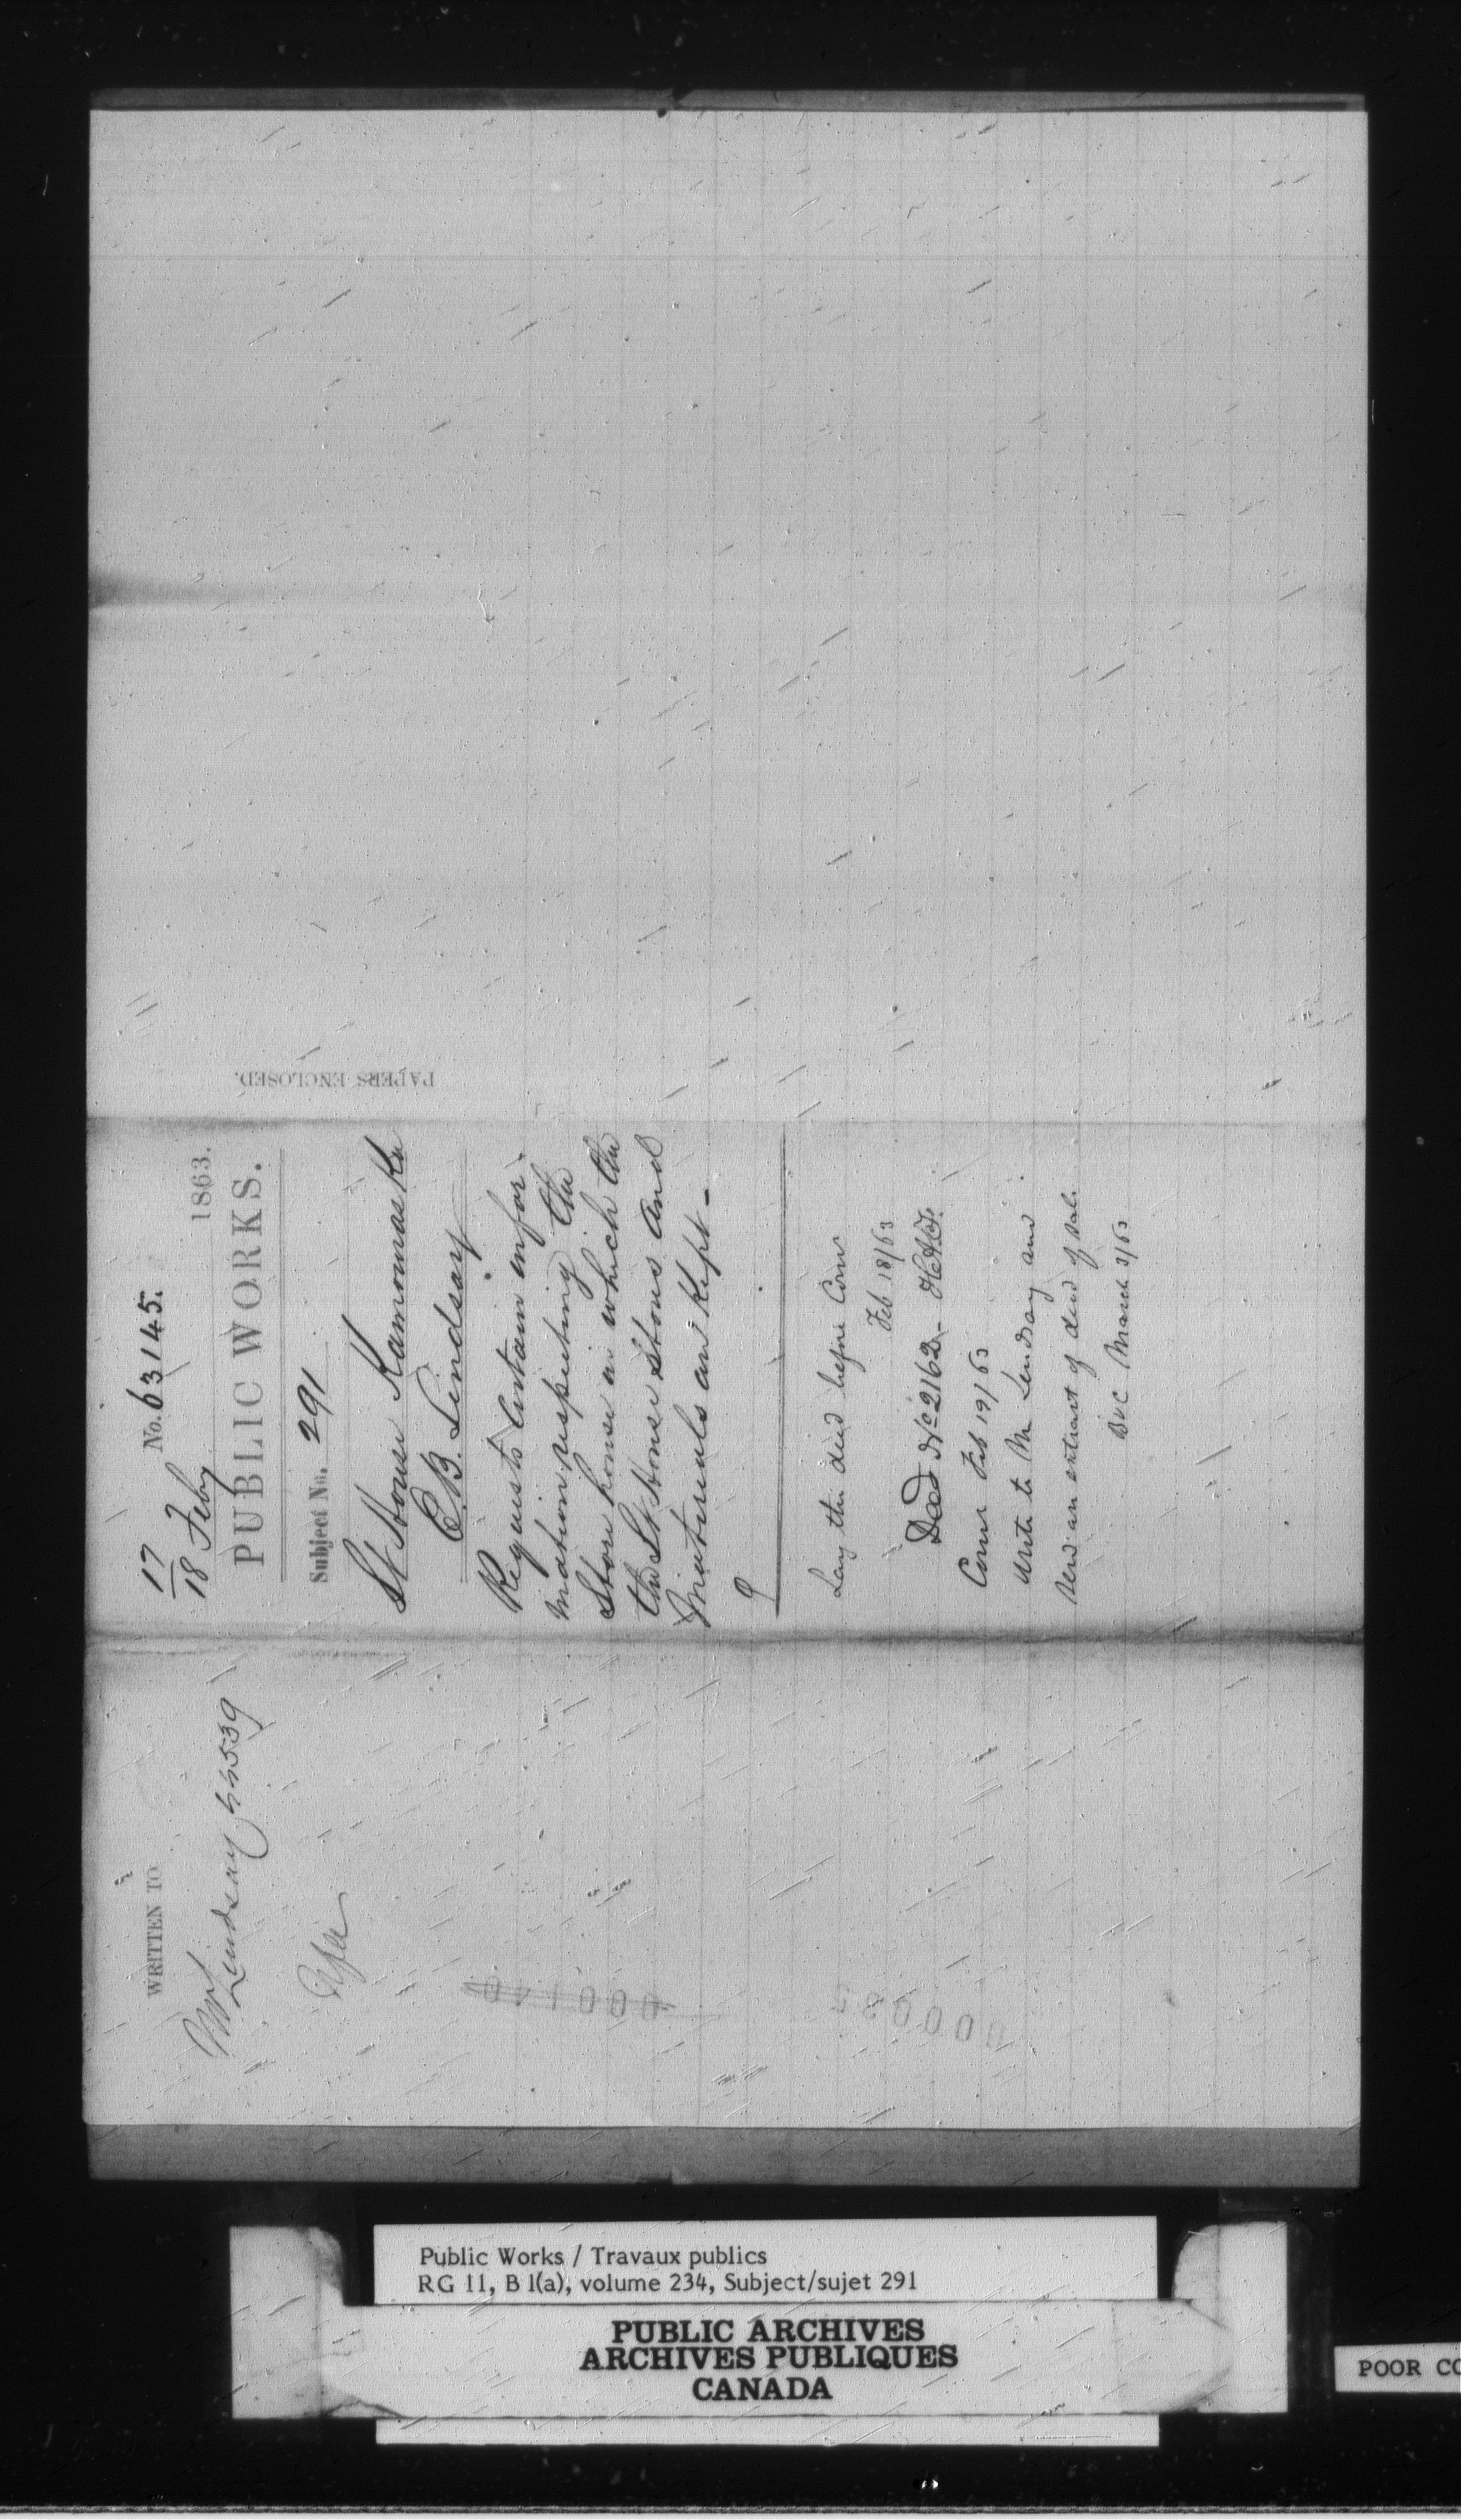 17/18 Feby No. 63145.
1863.
PUBLIC WORKS.
Subject No. 291
Lt House Kamouraska
E.B. Lindsay
Requests Certain infor-
mation respecting the
Store house in which the
the Lt House Stores and
Materials are Kept -
9
Lay the deed before Comr
Feb 18/63
Deed No 2162 -
Comr Feb 19/63
Write to Mr Lindsay and
send an extract of deed of sale
March 3/63
PAPERS ENCLOSED.
WRITTEN TO
Mr Lindsay 44539
000140
000085
Public Works / Travaux publics
RG 11, B 1(a), volume 234, Subject/sujet 291
PUBLIC ARCHIVES
ARCHIVES PUBLIQUES
CANADA
POOR CO